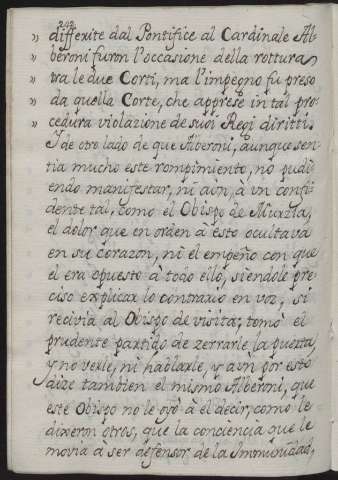 242
" differite dal Pontifice al Cardinale Al-
" beroni furon l'occasione della rottura
" tra le due Corti, ma l'impegno fu preso
" da quella Corte, che apprese in tal pro-
" cedura violazione de suoi Regi diritti.
Y de otro lado de que Alberoni, aunque sen-
tia mucho este rompimiento, no pudi-
endo manifestar, ni aun, à un confi-
dente tal, como el Obispo de Murzia,
el dolor que en orden à esto ocultava
en su corazon, ni el empeño con que
el era opuesto à todo ello, siendole pre-
ciso explicar lo contrario en voz, si
recivia al Obispo de visita; tomò el
prudente partido de zerrarle la puerta,
y no verle, ni hablarle, y aùn por esto
dize tambien el mismo Alberoni, que
este Obispo no le oyò à el decir, como le
dixeron otros, que la conciencia que le
movia à ser defensor de la Immunidad,